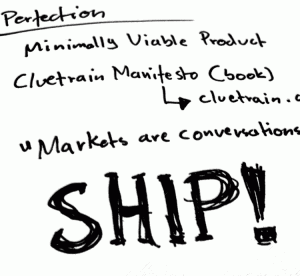 Perfection
Minimally Viable Product
Cluetrain Manifesto (book)
cluetrain.c
"Markets are conversations
SHIP!